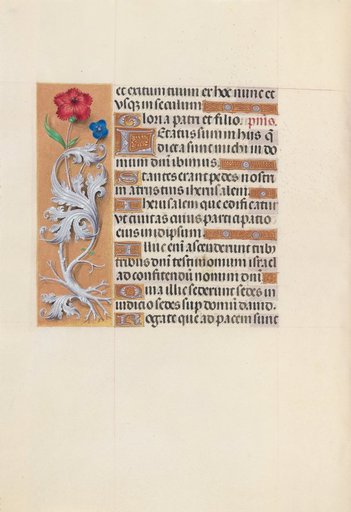 et exitum tuum ex hoc nunc et
usq; in seculum
Gloria patri et filio. pms.
Letatus sum in hiis q
dicta sunt michi in do
mini ibimus.
Stantes erant pedes nostri
in atriis tuis iherusalem
Iherusalem que edificatur
vt ciuitas cuius participatio
eius in idipsum.
Illuc eni ascenderunt trib9
tribus dni testimonium israel
ad confitendu nomini dni
Quia illic sederunt sedes in
iudicio sedes sup domu dauid.
Rogate que ad pacem sunt